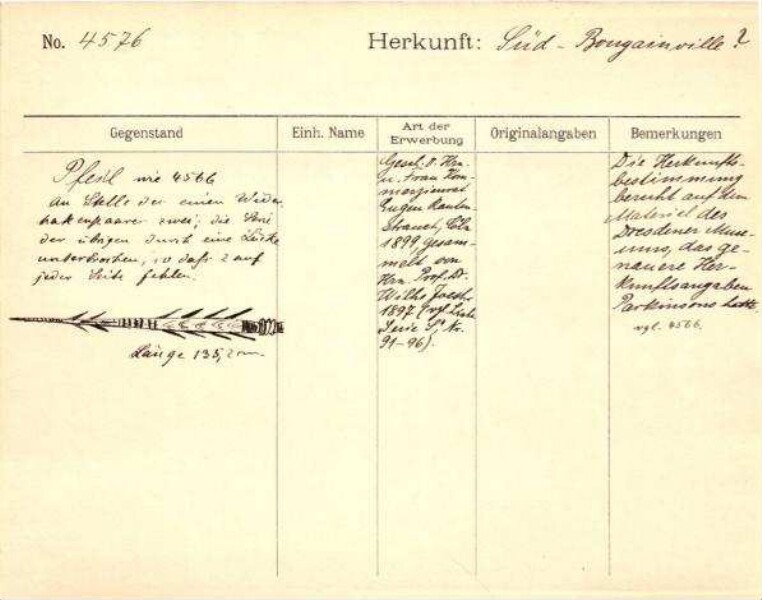 No. 4576
Herkunft: Süd-Bougainville?
Gegenstand
Einh. Name
Art der
Erwerbung
Originalangaben
Bemerkungen
Pfeil wie 4566
An Stelle der einen Wider
hakenpaares zwei; die Serie
der übrigen durch eine Lücke
unterbrochen, so dafs 2 auf
jeder Seite fehlen.
Länge 135,2 cm.
Gesch. v. Hrn.
u. Frau Kom-
merzienrat
Eugen Rauten-
strauch, Cöln
1899, gesam-
melt von
Hrn. Prof. Dr.
Wilh. Joest
1897 (vgl. Liste
Serie S, Nr.
91-96).
Die Herkunfts-
bestimmung
beruht auf dem
Material des
Dresdener Muse-
ums, das ge-
nauere Her-
kunftsangaben
Parkinsons hatte.
vgl. 4566.